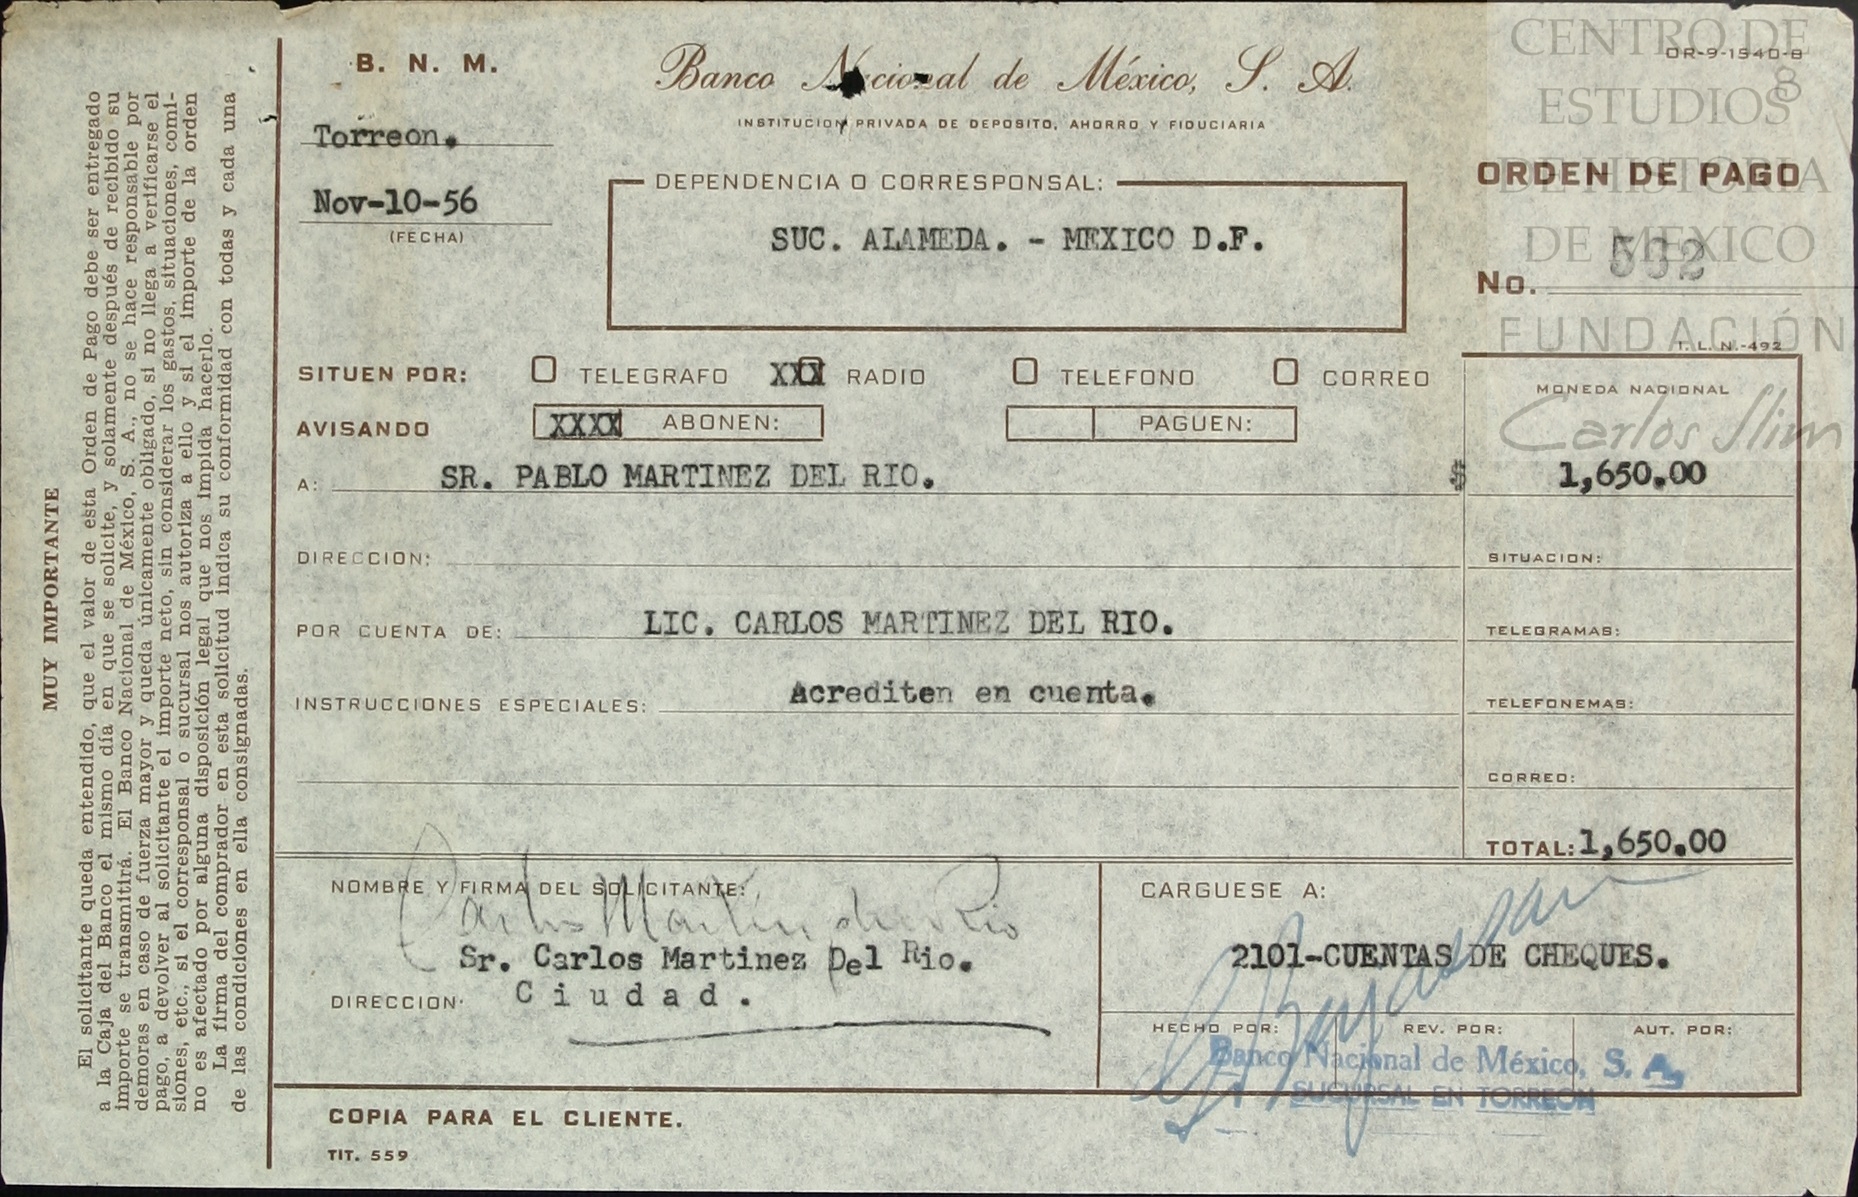 CENTRO DE
ESTUDIOS
DE HISTORIA
DE MEXICO
FUNDACIÓN
Carlos Slim
OR-9-1540-8
8
B. N. M.
Banco Nacional de México, S. A.
INSTITUCION PRIVADA DE DEPOSITO, AHORRO Y FIDUCIARIA
Torreon.
Nov-10-56
(FECHA)
DEPENDENCIA O CORRESPONSAL:
SUC. ALAMEDA. - MEXICO D.F.
ORDEN DE PAGO
No. 532
T. L. N.-492
SITUEN POR: TELEGRAFO XXX RADIO TELEFONO CORREO
AVISANDO XXXX ABONEN: PAGUEN:
MONEDA NACIONAL
A: SR. PABLO MARTINEZ DEL RIO. $ 1,650.00
DIRECCION:
SITUACION:
POR CUENTA DE: LIC. CARLOS MARTINEZ DEL RIO.
TELEGRAMAS:
INSTRUCCIONES ESPECIALES: Acrediten en cuenta.
TELEFONEMAS:
CORREO:
TOTAL: 1,650.00
NOMBRE Y FIRMA DEL SOLICITANTE:
Carlos Martínez del Rio
Sr. Carlos Martinez Del Rio.
DIRECCION: Ciudad.
CARGUESE A:
2101-CUENTAS DE CHEQUES.
HECHO POR: REV. POR: AUT. POR:
Banco Nacional de México, S. A.
SUCURSAL EN TORREON
COPIA PARA EL CLIENTE.
TIT. 559
MUY IMPORTANTE
El solicitante queda entendido, que el valor de esta Orden de Pago debe ser entregado
a la Caja del Banco el mismo día en que se solicite, y solamente después de recibido su
importe se transmitirá. El Banco Nacional de México, S. A., no se hace responsable por
demoras en caso de fuerza mayor y queda únicamente obligado, si no llega a verificarse el
pago, a devolver al solicitante el importe neto, sin considerar los gastos, situaciones, comi-
siones, etc., si el corresponsal o sucursal nos autoriza a ello y si el importe de la orden
no es afectado por alguna disposición legal que nos impida hacerlo.
La firma del comprador en esta solicitud indica su conformidad con todas y cada una
de las condiciones en ella consignadas.